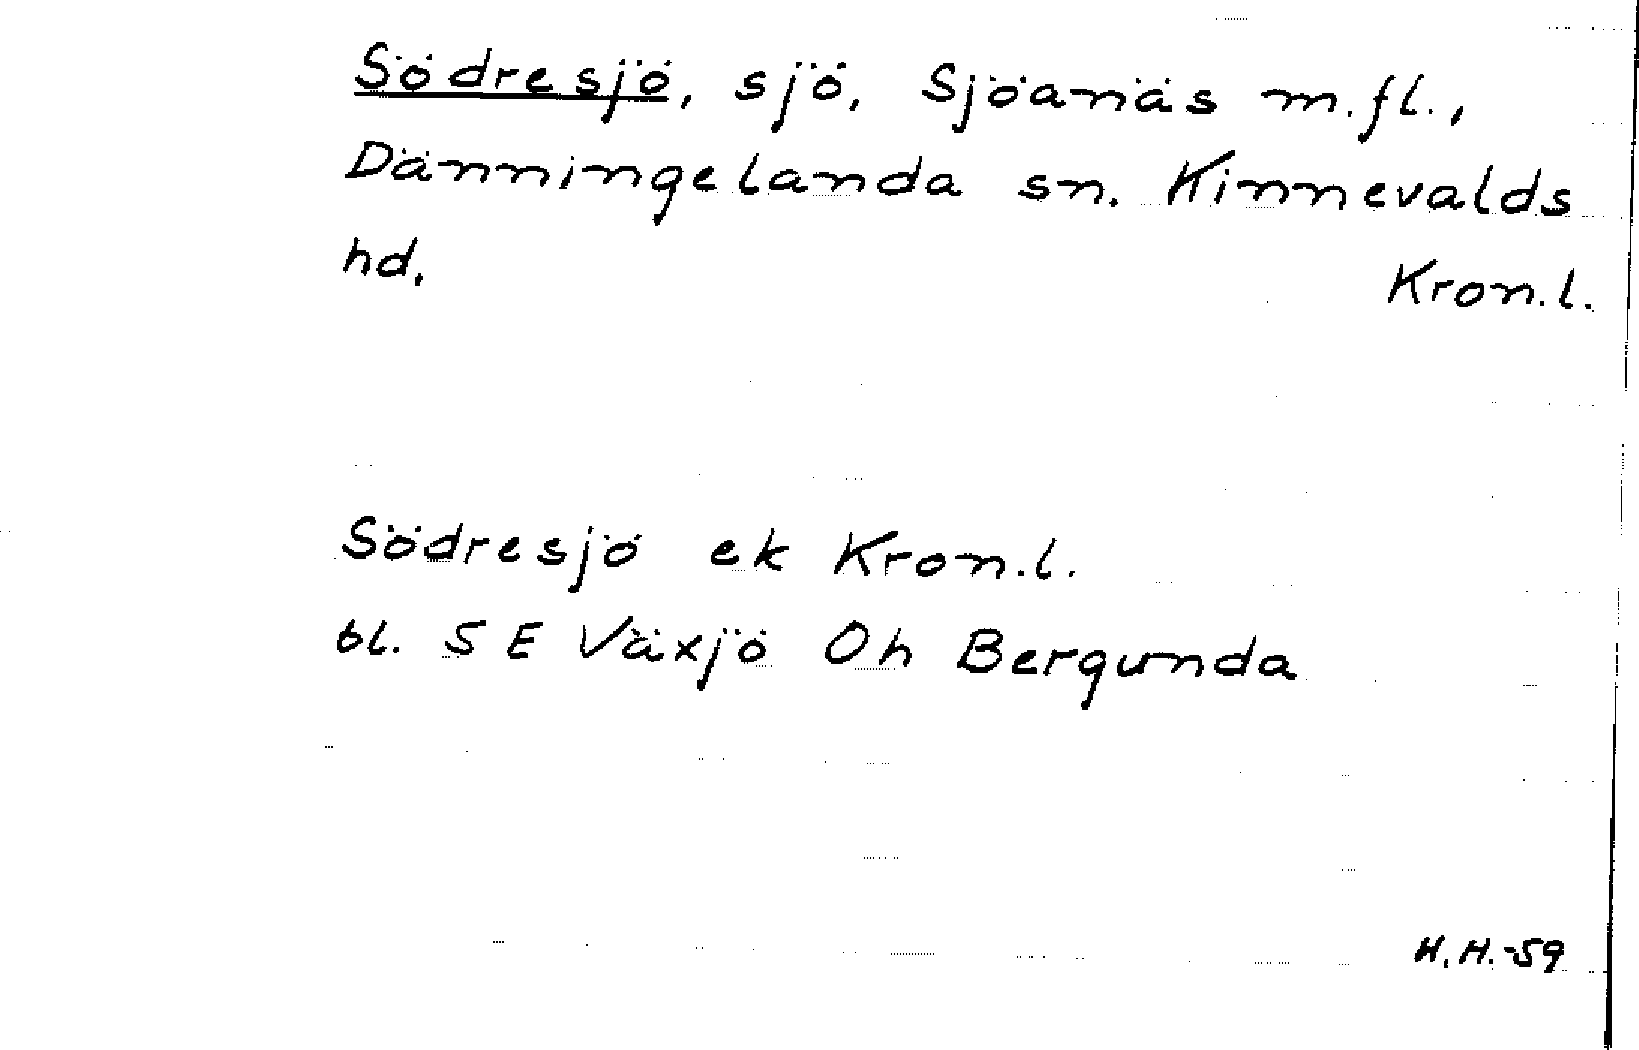 Södresjö, sjö, Sjöanäs m.fl.,
Dänningelanda sn. Kinnevalds
hd. Kron.l.
Södresjö ek Kron.l.
bl. S E Växjö Oh Bergunda
H.H.-59